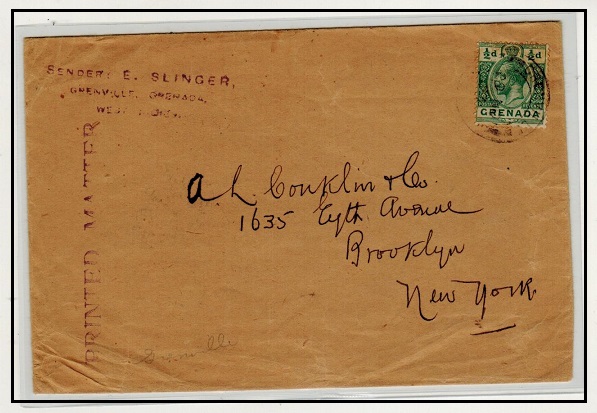 SENDER: E. SLINGER,
GRENVILLE, GRENADA,
½d ½d
GRENADA
PRINTED MATTER
A L Conklin & Co.
1635 Avenue
Brooklyn
New York
Grenville